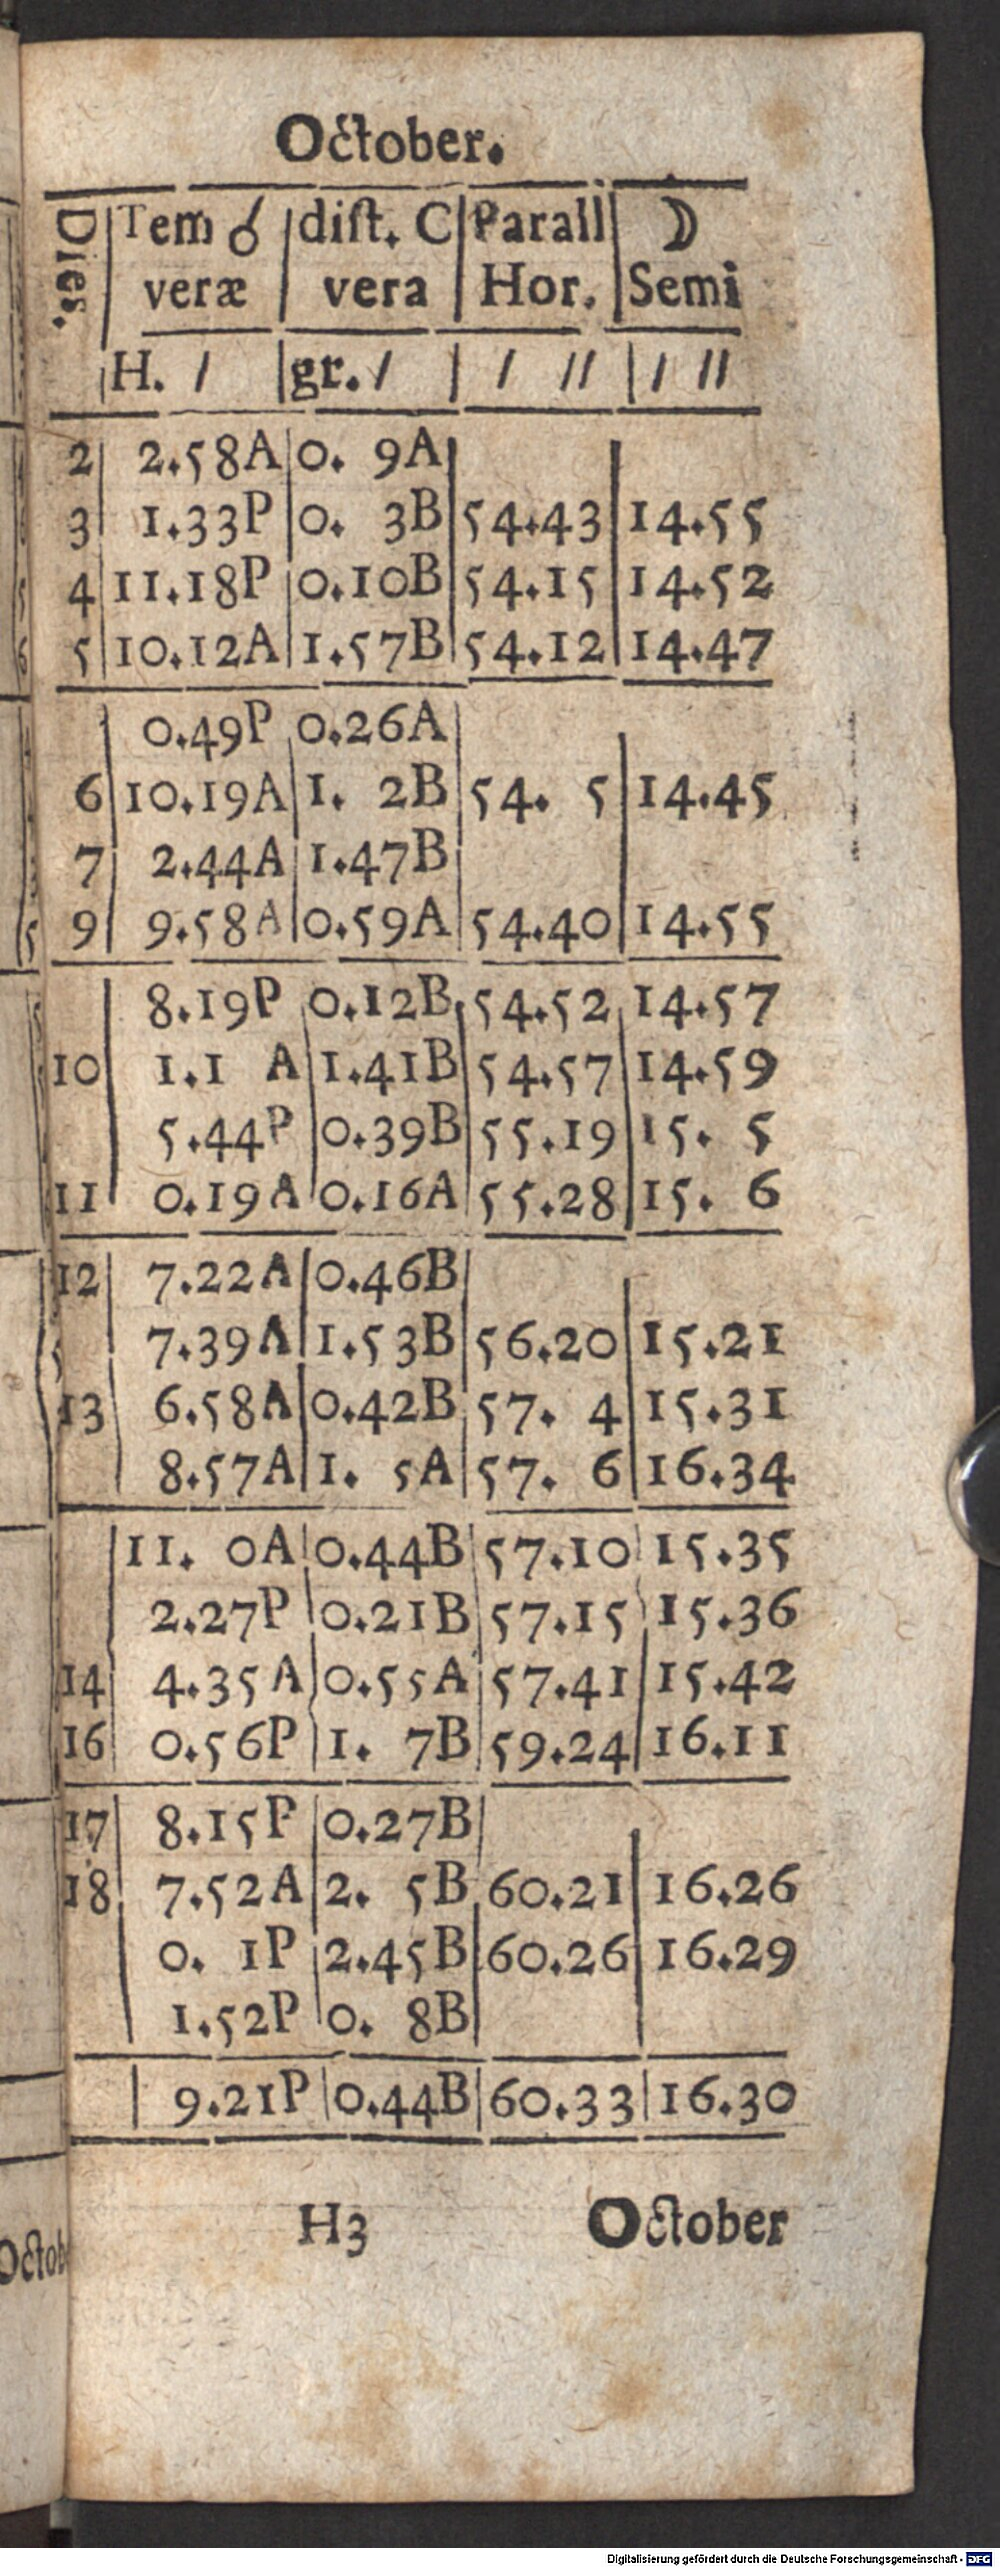 October.
Dies. Tem ☌ dist. C Parall ☽
veræ vera Hor. Semi
H. / gr. / / // / //
2 2.58A 0. 9A
3 1.33P 0. 3B 54.43 14.55
4 11.18P 0.10B 54.15 14.52
5 10.12A 1.57B 54.12 14.47
0.49P 0.26A
6 10.19A 1. 2B 54. 5 14.45
7 2.44A 1.47B
9 9.58A 0.59A 54.40 14.55
8.19P 0.12B 54.52 14.57
10 1.1 A 1.41B 54.57 14.59
5.44P 0.39B 55.19 15. 5
11 0.19A 0.16A 55.28 15. 6
12 7.22A 0.46B
7.39A 1.53B 56.20 15.21
13 6.58A 0.42B 57. 4 15.31
8.57A 1. 5A 57. 6 16.34
11. 0A 0.44B 57.10 15.35
2.27P 0.21B 57.15 15.36
14 4.35A 0.55A 57.41 15.42
16 0.56P 1. 7B 59.24 16.11
17 8.15P 0.27B
18 7.52A 2. 5B 60.21 16.26
0. 1P 2.45B 60.26 16.29
1.52P 0. 8B
9.21P 0.44B 60.33 16.30
H3 October
Digitalisierung gefördert durch die Deutsche Forschungsgemeinschaft - DFG